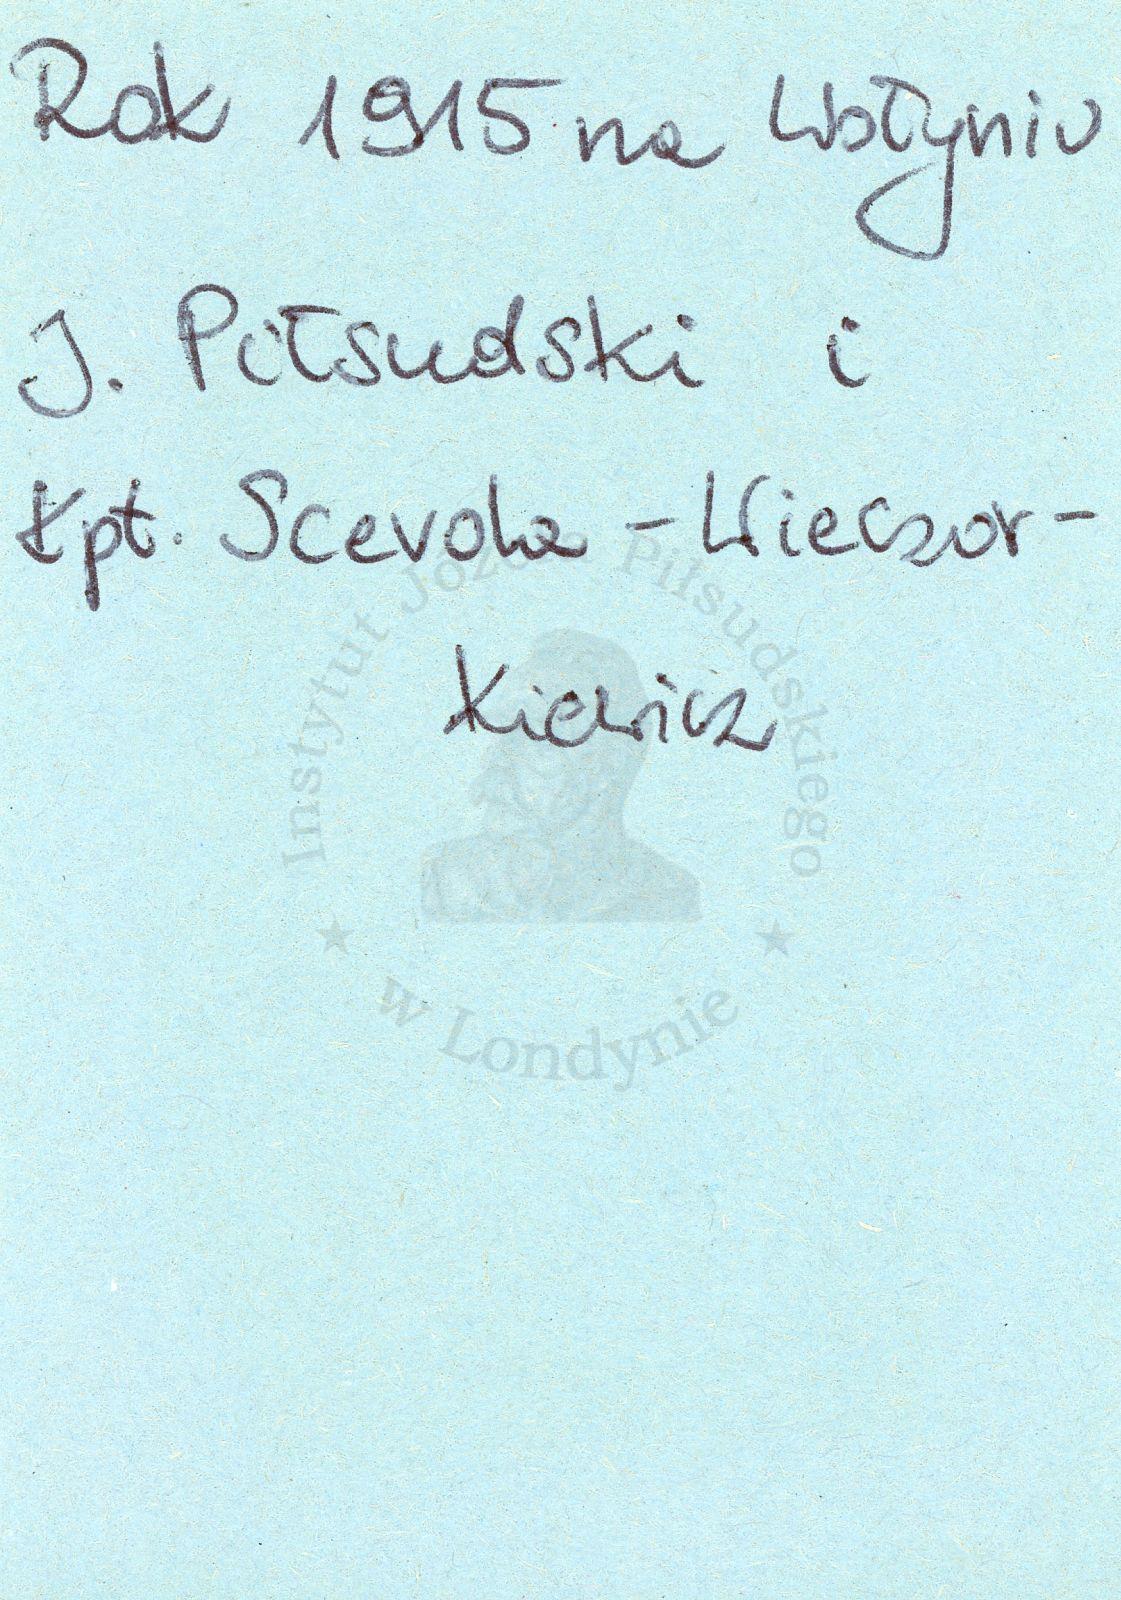 Rok 1915 na Wołyniu
J. Piłsudski i
kpt. Scevola - Wieczor-
kiewicz
Instytut Józefa Piłsudskiego
w Londynie